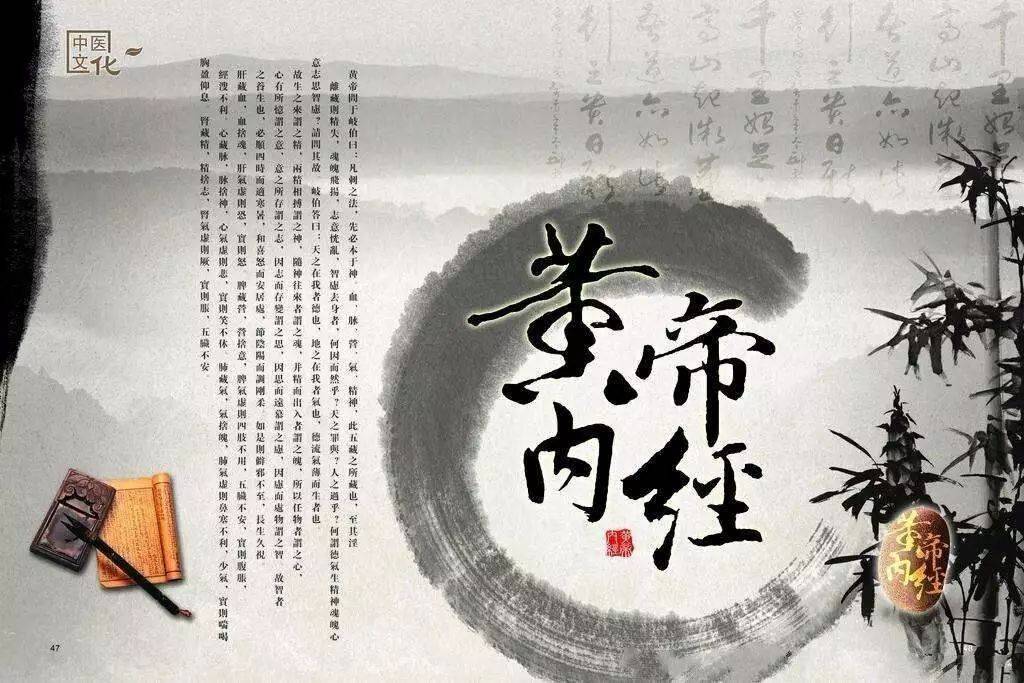 中医
文化
黄帝問于岐伯曰：凡刺之法，先必本于神。血、脉、營、氣、精神，此五藏之所藏也，至其淫
離藏則精失，魂魄飛揚，志意恍亂，智慮去身者，何因而然乎？天之罪與？人之過乎？何謂德氣生精神魂魄心
意志思智慮？請問其故。岐伯答曰：天之在我者德也，地之在我者氣也，德流氣薄而生者也
故生之來謂之精，兩精相搏謂之神，隨神往來者謂之魂，并精而出入者謂之魄，所以任物者謂之心，
心有所憶謂之意，意之所存謂之志，因志而存變謂之思，因思而遠慕謂之慮，因慮而處物謂之智。故智者
之養生也，必順四時而適寒暑，和喜怒而安居處，節陰陽而調剛柔。如是則僻邪不至，長生久視。
肝藏血，血捨魂，肝氣虛則恐，實則怒。脾藏營，營捨意，脾氣虛則四肢不用，五臟不安，實則腹脹，
經溲不利。心藏脉，脉捨神，心氣虛則悲，實則笑不休。肺藏氣，氣捨魄，肺氣虛則鼻塞不利，少氣，實則喘喝
胸盈仰息。腎藏精，精捨志，腎氣虛則厥，實則脹，五臟不安。
黄帝
内經
黄帝
内經
黄帝
内經
千里始足
高山起微
吾道亦如
立貴日
47
48